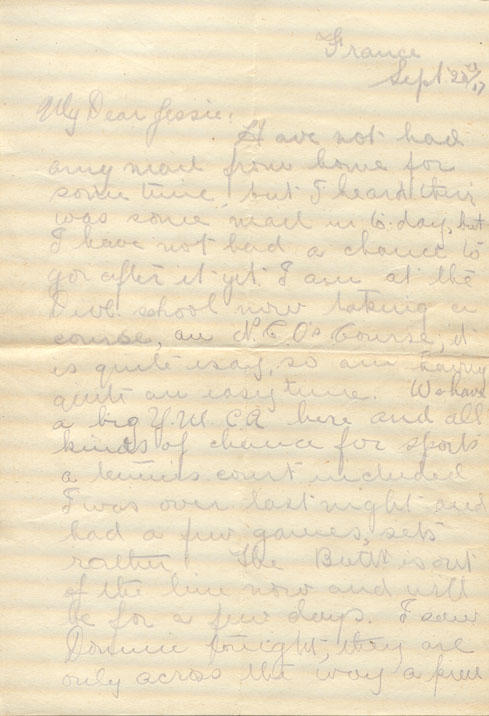 France
Sept 23rd/17
My Dear Jessie:
Have not had
any mail from home for
some time, but I heard their
was some mail in to-day, but
I have not had a chance to
go after it yet. I am at the
Divl. school now taking a
course, an N.C.O's Course, it
is quite easy, so am having
quite an easy time. We have
a big Y.M.C.A here and all
kinds of chance for sports
a tennis court included
I was over last night and
had a few games, sets
rather. The Battn is out
of the line now and will
be for a few days. I saw
tonight, they are
only across the way a few